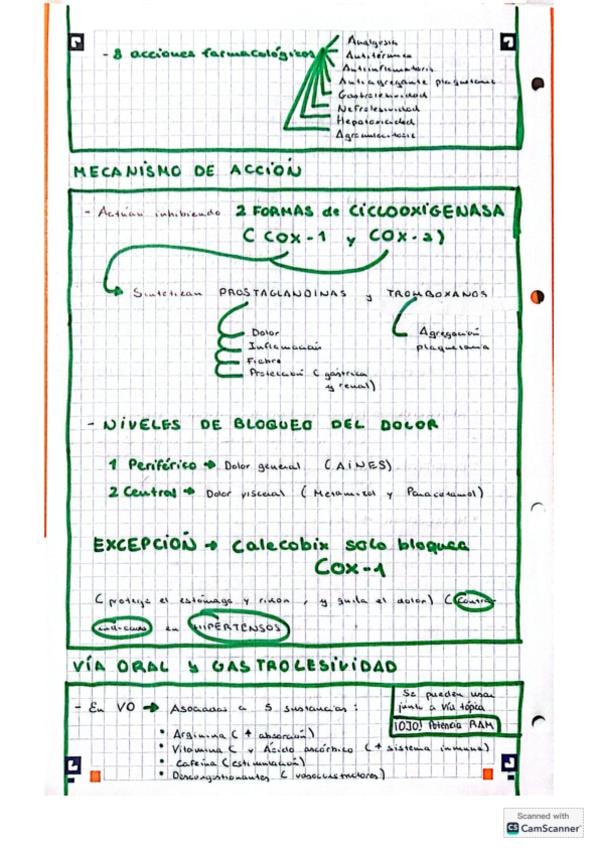 - 8 acciones farmacológicas
Analgesia
Antitérmica
Antiinflamatoria
Antiagregante plaquetaria
Gastrolesividad
Nefrolesividad
Hepatoxicidad
Agranulocitosis
MECANISMO DE ACCIÓN
- Actúan inhibiendo 2 FORMAS de CICLOOXIGENASA
( COX-1 y COX-2)
Sintetizan PROSTAGLANDINAS y TROMBOXANOS
Dolor
Inflamación
Fiebre
Protección ( gástrica
y renal)
Agregación
plaquetaria
- NIVELES DE BLOQUEO DEL DOLOR
1 Periférico → Dolor general (AINES)
2 Central → Dolor visceral ( Metamizol y Paracetamol)
EXCEPCIÓN → Calecobix solo bloquea
COX-1
( protege el estómago y riñon , y quita el dolor) ( Contra
indicado en HIPERTENSOS
VÍA ORAL y GASTROLESIVIDAD
- En VO → Asociadas a 5 sustancias :
Se pueden usar
junto a vía tópica
¡OJO! Potencia RAM
• Arginina ( + absorción)
• Vitamina C y Ácido ascórbico ( + sistema inmune)
• Cafeína ( estimulación)
• Descongestionantes ( vasoconstrictores)
Scanned with
CS CamScanner